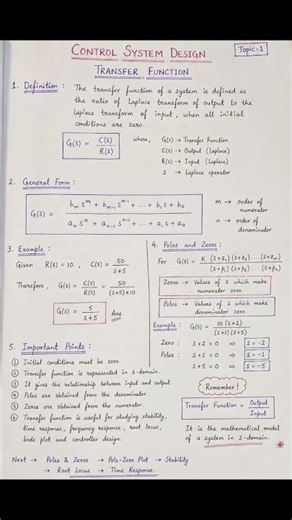 CONTROL SYSTEM DESIGN
Topic-1
TRANSFER FUNCTION
1. Definition :
The transfer function of a system is defined as
the ratio of Laplace transform of output to the
Laplace transform of input, when all initial
conditions are zero.
G(s) = C(s) / R(s)
where, G(s) → Transfer Function
C(s) → Output (Laplace)
R(s) → Input (Laplace)
s → Laplace operator
2. General Form :
G(s) = (bₘ sᵐ + bₘ₋₁ sᵐ⁻¹ + ... + b₁ s + b₀) / (aₙ sⁿ + aₙ₋₁ sⁿ⁻¹ + ... + a₁ s + a₀)
m → order of
numerator
n → order of
denominator
3. Example :
Given R(s) = 10 , C(s) = 50 / (s+5)
Therefore, G(s) = C(s) / R(s) = 50 / (s+5)×10
G(s) = 5 / (s+5) Ans.
4. Poles and Zeros :
For G(s) = K (s+z₁)(s+z₂) ... (s+zₘ) / (s+p₁)(s+p₂) ... (s+pₙ)
Zeros → Values of s which make
numerator zero.
Poles → Values of s which make
denominator zero.
Example : G(s) = 10 (s+2) / (s+1)(s+5)
Zero : s+2 = 0 ⇒ s = -2
Poles : s+1 = 0 ⇒ s = -1
s+5 = 0 ⇒ s = -5
5. Important Points :
① Initial conditions must be zero.
② Transfer function is represented in s-domain.
③ It gives the relationship between input and output.
④ Poles are obtained from the denominator.
⑤ Zeros are obtained from the numerator.
⑥ Transfer function is useful for studying stability,
time response, frequency response, root locus,
bode plot and controller design.
Remember!
Transfer Function = Output / Input
It is the mathematical model
of a system in s-domain.
Next → Poles & Zeros → Pole-Zero Plot → Stability
→ Root Locus → Time Response.